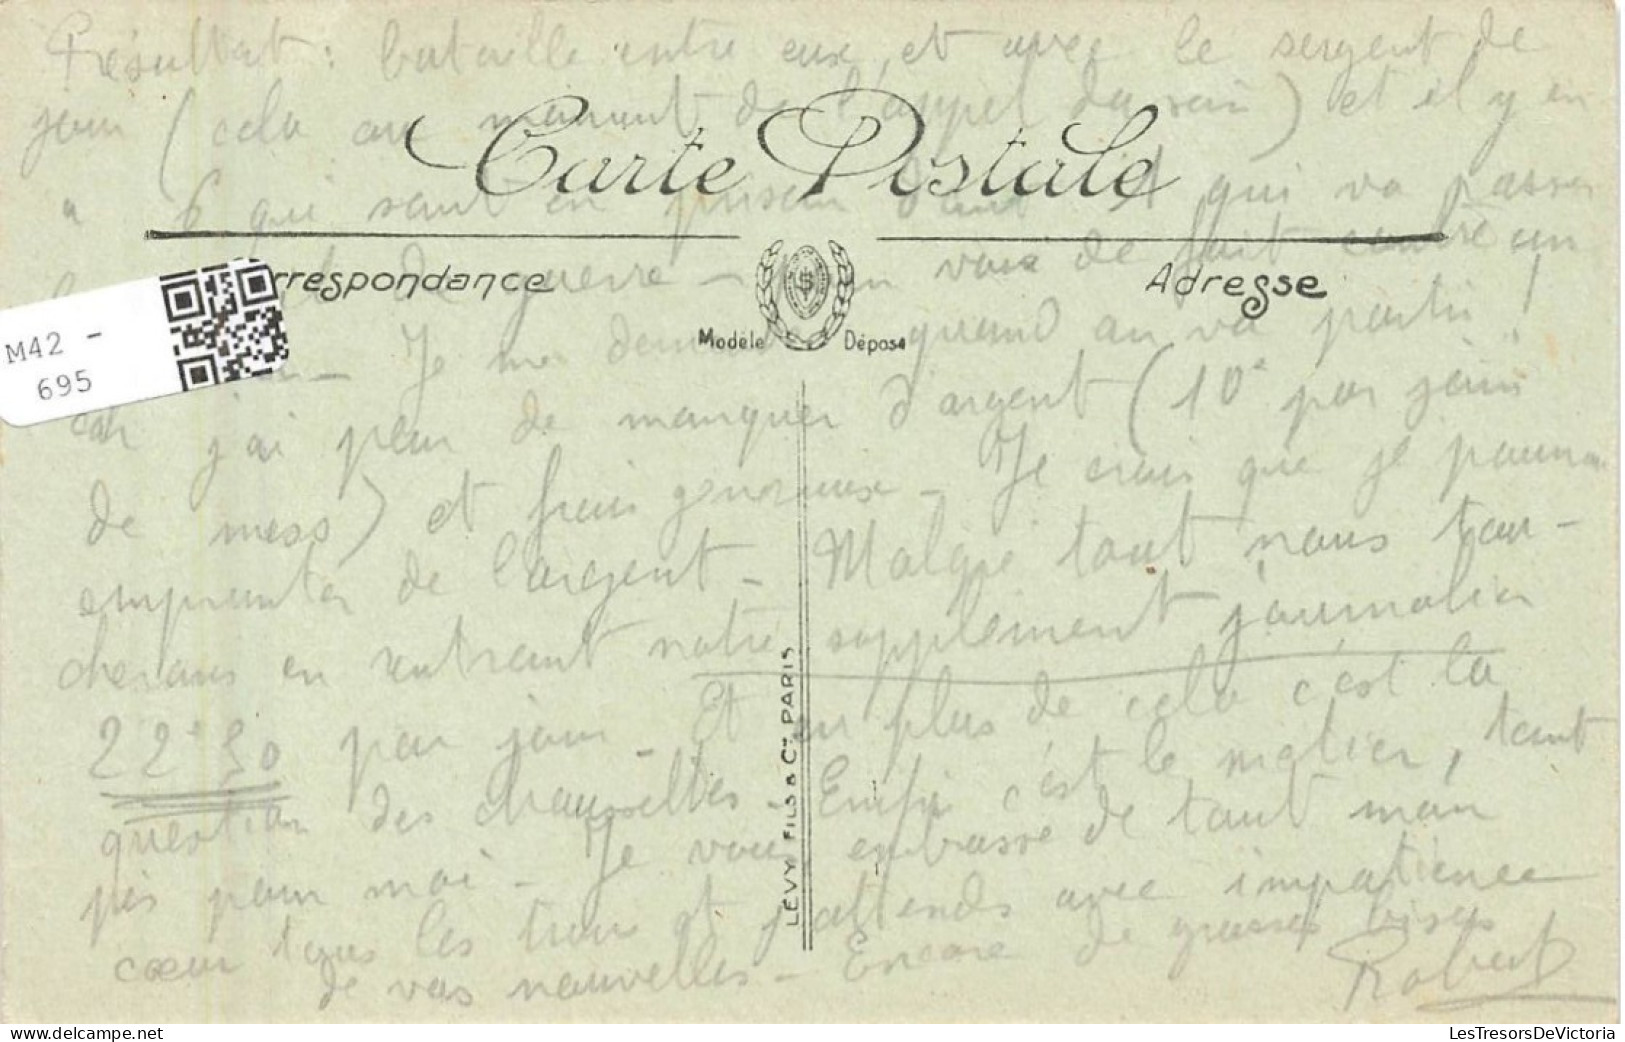 Résultat : bataille entre eux, et avec le sergent de
jour (cela au moment de l'appel du soir) et il y en
a 6 qui sont en prison dont 1 qui va passer
Carte Postale
de guerre - pour voie de fait contre un
Correspondance
Adresse
Modèle Déposé
M42 -
695
Je me demande quand on va partir !
car j'ai peur de manquer d'argent (10e par jour
de mess) et frais généraux - Je crois que je pourrai
emprunter de l'argent - Malgré tout nous tou-
cherons en rentrant notre supplément journalier
22e50 par jour - Et en plus de cela c'est la
question des chaussettes - Enfin c'est le métier, tant
pis pour moi - Je vous embrasse de tout mon
cœur tous les trois et j'attends avec impatience
de vos nouvelles - Encore de grosses bises
Robert
LÉVY FILS & Cie PARIS
LesTresorsDeVictoria
www.delcampe.net